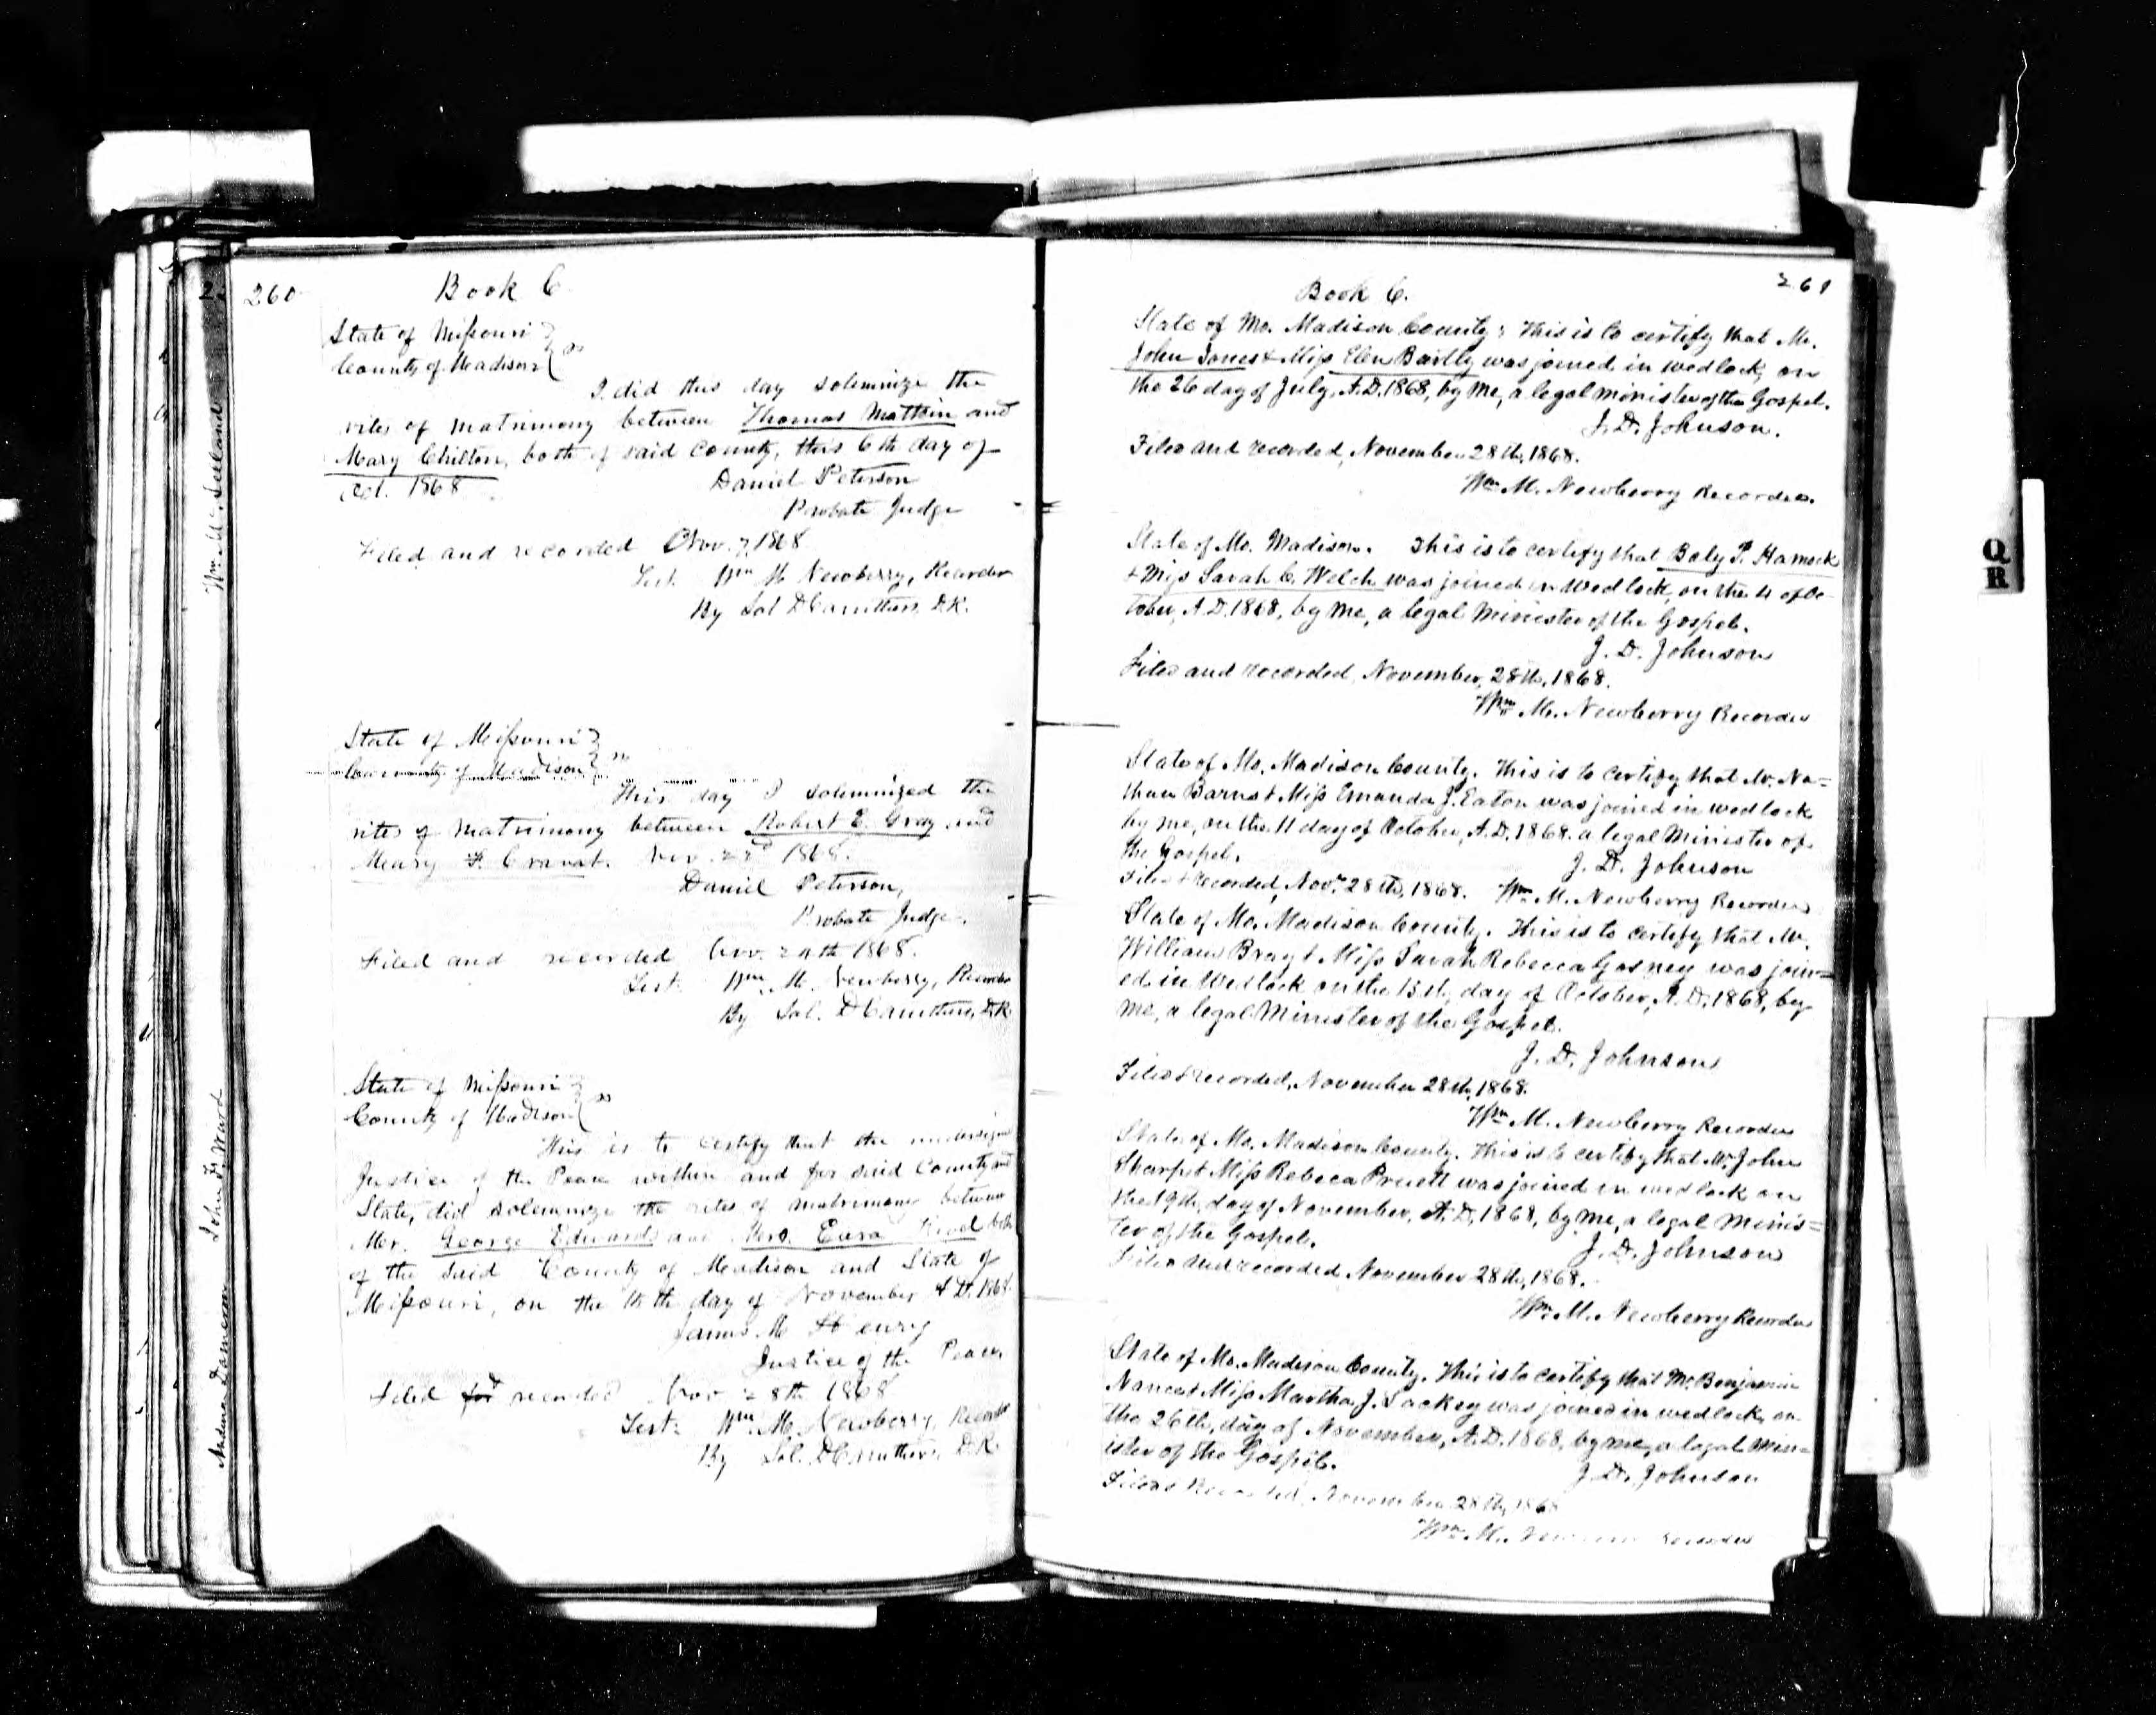 260
Book C
State of Missouri
County of Madison } ss
I did this day solemnize the
rites of matrimony between Thomas Mattin and
Mary Chilton, both of said County, this 6th day of
Oct. 1868
Daniel Peterson
Probate Judge
Filed and recorded Nov. 7, 1868
Test. Wm M Newberry, Recorder
By Sol D Caruthers, D.R.
State of Missouri
County of Madison } ss
This day I solemnized the
rites of matrimony between Robert E. Gray and
Meary F. Cravat. Nov. 22d 1868.
Daniel Peterson,
Probate Judge.
Filed and recorded Nov. 24th 1868.
Test. Wm. M. Newberry, Recorder
By Sol. D Caruthers, D.R.
State of Missouri
County of Madison } ss
This is to certify that the undersigned
Justice of the Peace within and for said County and
State, did solemnize the rites of matrimony between
Mr. George Edwards and Mrs. both
of the said County of Madison and State of
Missouri, on the 15th day of November A D. 1868.
James M Henry
Justice of the Peace.
Filed for recorded Nov 28th 1868
Test: Wm. M. Newberry, Recorder
By Sol. D Caruthers, D.R.
John F. Ward
261
Book C.
State of Mo. Madison County; This is to certify that Mr.
John Jones & Miss Elen Bartly was joined in wedlock, on
the 26 day of July, A.D. 1868, by me, a legal minister of the Gospel.
J. D. Johnson.
Filed and recorded, November 28th, 1868.
Wm. M. Newberry Recorder.
State of Mo. Madison. This is to certify that Baly P. Hamock
& Miss Sarah C. Welch was joined in wedlock, on the 4 of Oc-
tober, A.D. 1868, by me, a legal minister of the Gospel.
J. D. Johnson
Filed and recorded, November, 28th, 1868.
Wm. M. Newberry Recorder
State of Mo. Madison County. This is to certify that Mr. Na=
than Barns & Miss Emanda J. Eaton was joined in wedlock
by me, on the 11 day of October, A.D. 1868. a legal Minister of
the Gospel.
J. D. Johnson
Filed & recorded, Novr. 28th, 1868. Wm. M. Newberry Recorder
State of Mo. Madison County. This is to certify that Mr.
William Bray & Miss Sarah Rebecca Gosney was join=
ed in Wedlock on the 15th, day of October, A.D. 1868, by
me, a legal Minister of the Gospel.
J. D. Johnson
Filed & recorded, November 28th, 1868.
Wm M. Newberry Recorder
State of Mo. Madison County. This is to certify that Mr. John
Sharp & Miss Rebeca Pruett was joined in wedlock on
the 19th, day of November, A.D. 1868, by me, a legal Minis=
ter of the Gospel.
J. D. Johnson
Filed and recorded November 28th, 1868.
Wm. M. Newberry Recorder
State of Mo. Madison County. This is to certify that Mr. Benjamin
Nance & Miss Martha J. Lackey was joined in wedlock, on
the 26th, day of November, A.D. 1868, by me, a legal Min=
ister of the Gospel.
J. D. Johnson
Filed & Recorded, November 28th, 1868
Wm. M. Newberry Recorder
Q
R